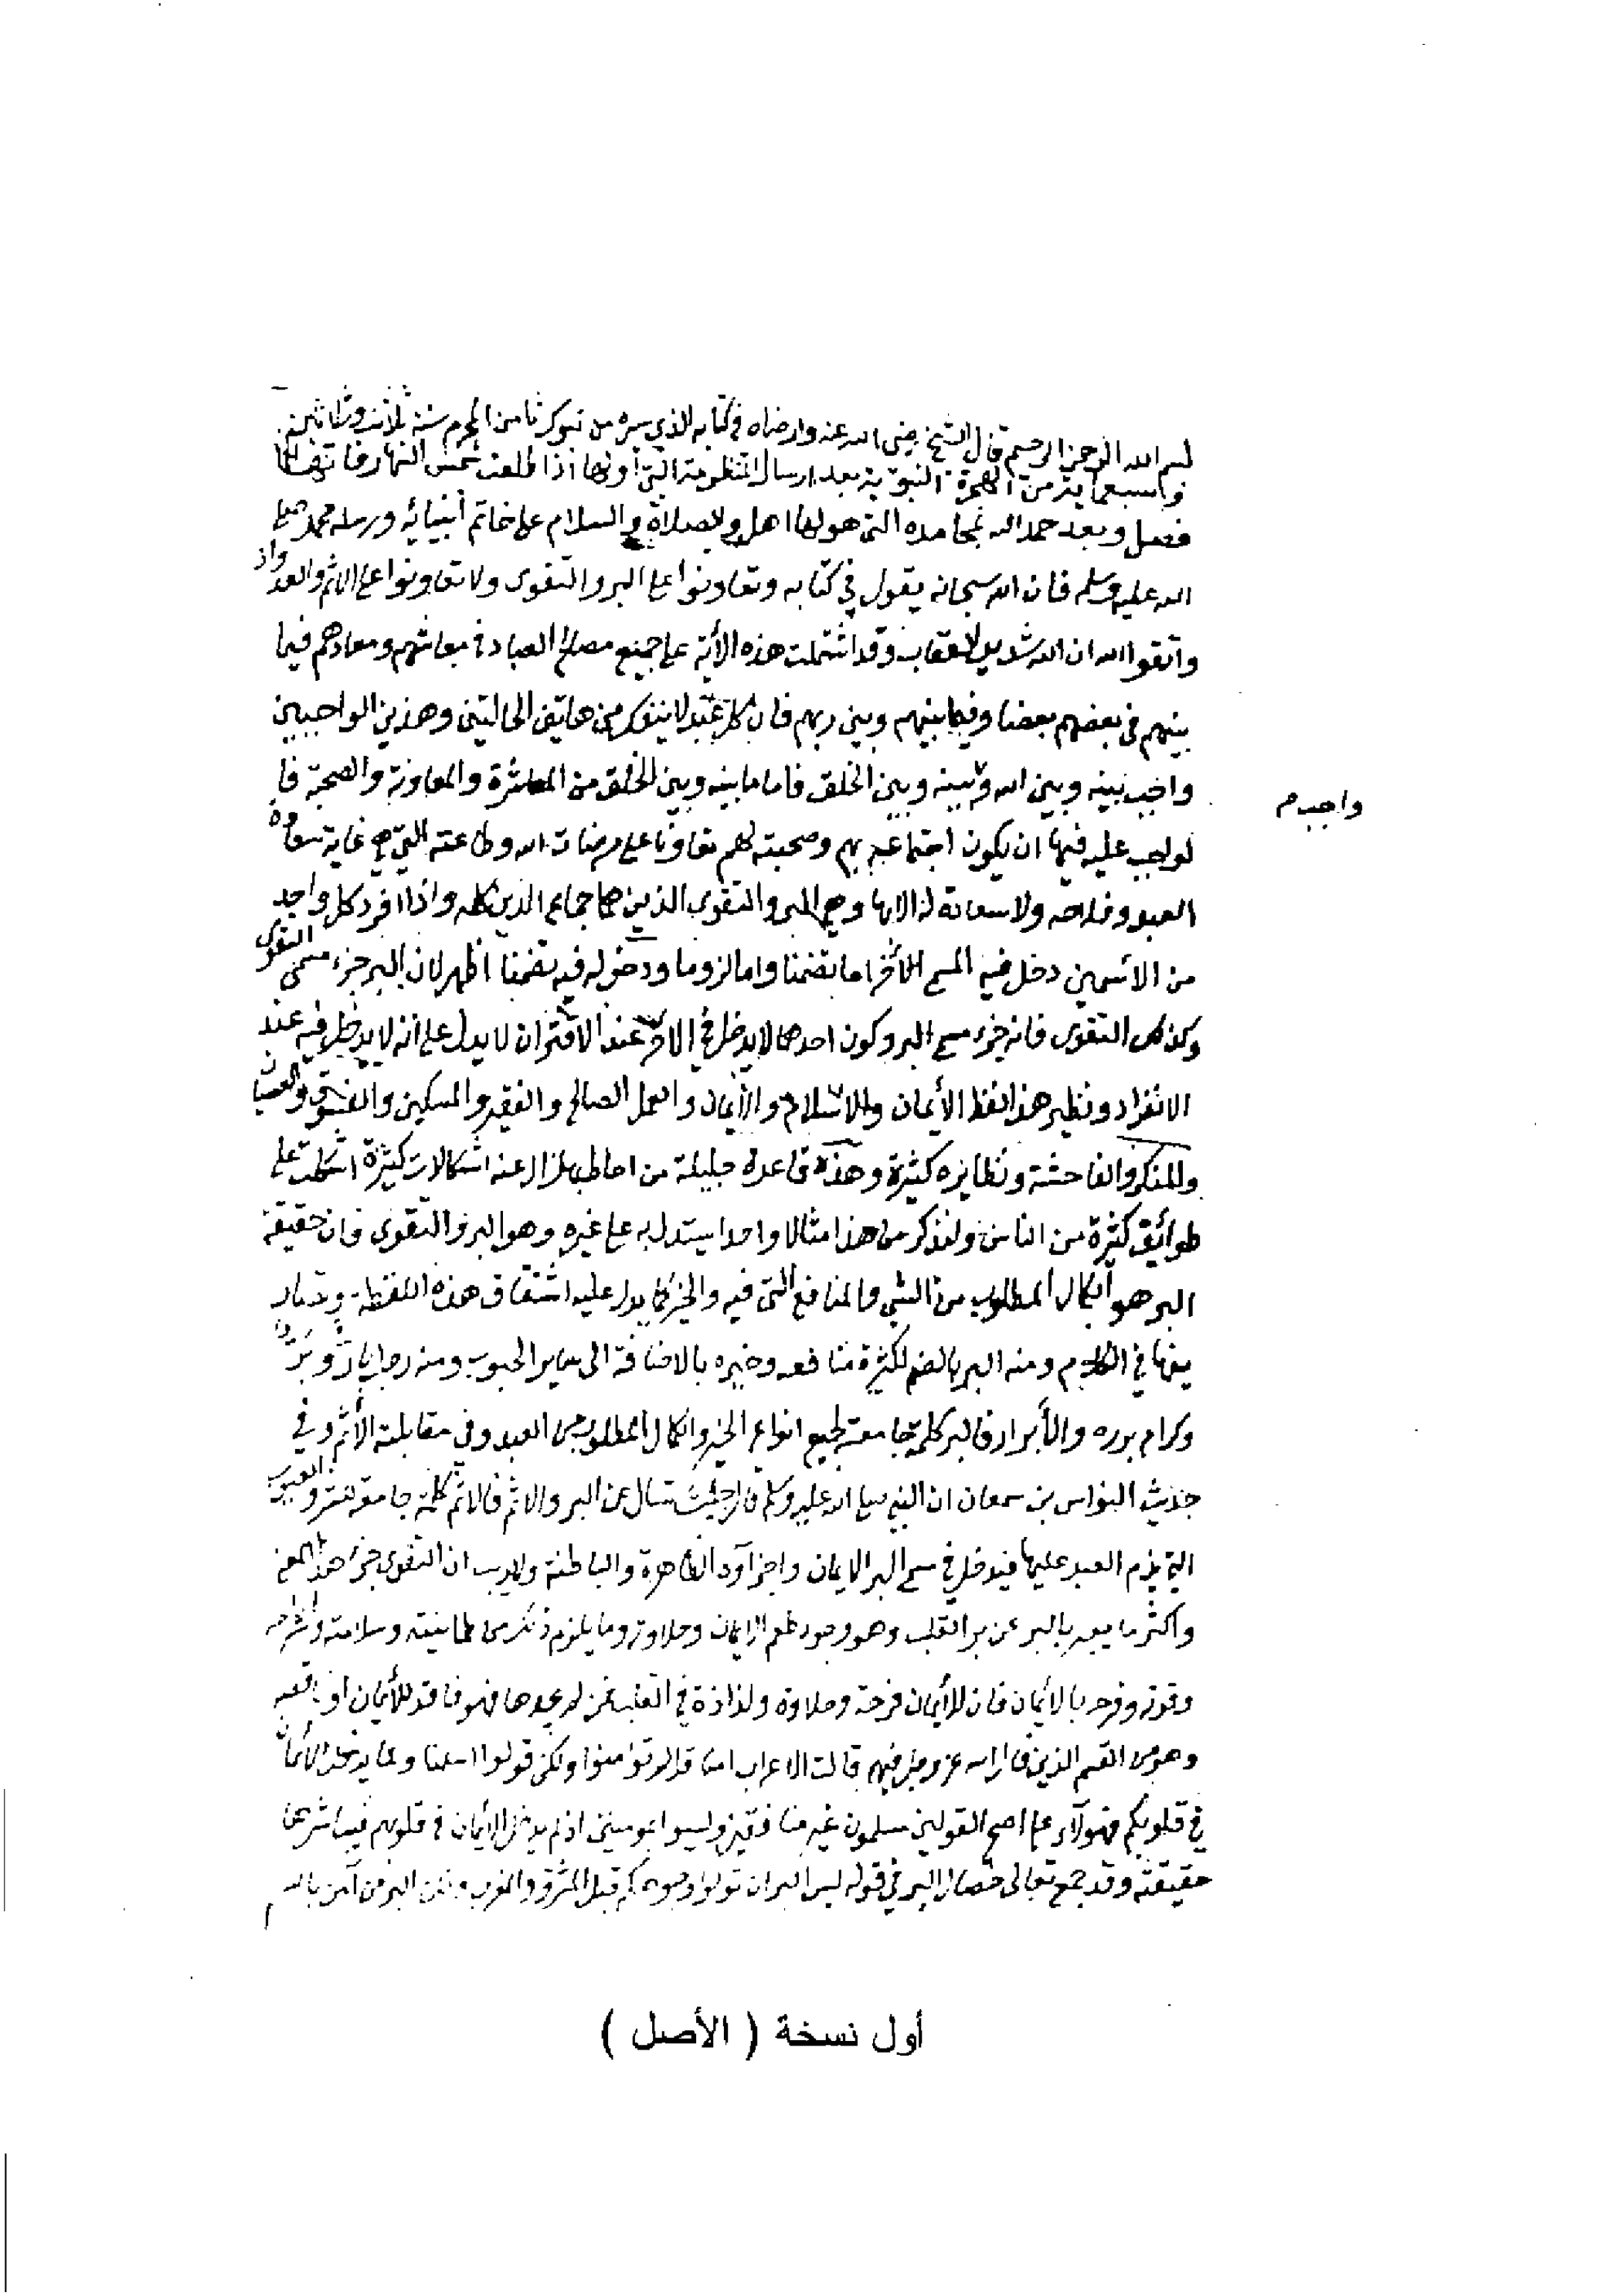 بسم الله الرحمن الرحيم قال الشيخ رضى الله عنه وارضاه في كتابه الذي سيره من تبوك ثامن المحرم سنة ثلاث وثلاثين
وسبعماية من الهجرة النبوية بعد ارسال المنظومة التي أولها اذا طلعت شمس النهار فانها
فصل وبعد حمد الله بمحامده التي هو لها اهل والصلاة والسلام على خاتم أنبيائه ورسله محمد صلى
الله عليه وسلم فان الله سبحانه يقول في كتابه وتعاونوا على البر والتقوى ولا تعاونوا على الاثم والعدوان
واتقوا الله ان الله شديد العقاب وقد اشتملت هذه الأية على جميع مصالح العباد في معاشهم ومعادهم فيما
بينهم في بعضهم بعضا وفيما بينهم وبين ربهم فان كل عبد لا ينفك من هاتين الحالتين وهذين الواجبين
واجب بينه وبين الله وبينه وبين الخلق فاما ما بينه وبين الخلق من المعاشرة والمعاونة والصحبة فا
واجب م
لواجب عليه فيها ان يكون اجتماعه بهم وصحبته لهم تعاونا على مرضات الله وطاعته التي هي غاية سعادة
العبد وفلاحه ولا سعادة له الا بها وهي البر والتقوى الذين هما جماع الدين كله واذا افرد كل واحد
من الاسمين دخل فيه المسمى الأخر اما تضمنا واما لزوما ودخوله فيه تضمنا اظهر لان البر جزء مسمى التقوى
وكذلك التقوى فانه جزء مسمى البر وكون احدهما لا يدخل في الاخر عند الاقتران لا يدل على انه لا يدخل فيه عند
الانفراد ونظير هذا لفظ الأيمان والاسلام والأيمان والعمل الصالح والفقير والمسكين والفسوق والعصيان
والمنكر والفاحشة ونظايره كثيرة وهذه قاعدة جليلة من احاط بها زال عنه اشكالات كثيرة اشكلت على
طوائف كثيرة من الناس ولنذكر من هذا مثالا واحدا يستدل به على غيره وهو البر والتقوى فان حقيقة
البر هو الكمال المطلوب من الشي والمنافع التي فيه والخير كما يدل عليه اشتقاق هذه اللفظة وتصار
يفها في الكلام ومنه البر بالضم لكثرة منافعه وخيره بالاضافة الى ساير الحبوب ومنه رجل بار وبر
وكرام بررة والأبرار فالبر كلمة جامعة لجميع انواع الخير والكمال المطلوب من العبد وفي مقابلته الأثم وفي
حديث النواس بن سمعان ان النبي صلى الله عليه وسلم قال جئت تسال عن البر والاثم فالاثم كلمة جامعة للشر والعيوب
التي يذم العبد عليها فيدخل في مسمى البر الايمان واجزآؤه الظاهرة والباطنة ولا ريب ان التقوى جزء هذا المعنى
وأكثر ما يعبر بالبر عن بر القلب وهو وجود طعم الايمان وحلاوته وما يلزم ذلك من طمانينته وسلامته وانشراحه
وقوته وفرحه بالايمان فان للأيمان فرحة وحلاوة ولذاذة في القلب فمن لم يجدها فهو فاقد للأيمان او ناقصه
وهو من القسم الذين قال الله عز وجل فيهم قالت الاعراب امنا قل لم تؤمنوا ولكن قولوا اسلمنا ولما يدخل الأيمان
في قلوبكم فهولآء على اصح القولين مسلمون غير منافقين وليسوا بمومنين اذ لم يدخل الأيمان في قلوبهم فيباشرها
حقيقته وقد جمع تعالى خصال البر في قوله ليس البر ان تولوا وجوهكم قبل المشرق والمغرب ولكن البر من آمن بالله
أول نسخة ( الأصل )